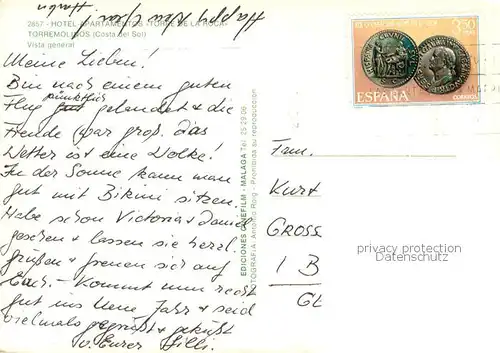 Happy New Year
2857 - HOTEL-APARTAMENTOS "TORRE DE LA ROCA"
TORREMOLINOS (Costa del Sol)
Vista general
Meine Lieben!
Bin nach einem guten
Flug pünktlich gelandet & die
Freude war groß. Das
Wetter ist eine Wolke!
In der Sonne kann man
gut mit Bikini sitzen.
Habe schon Victoria & Daniel
gesehen & lassen sie herzl.
grüßen & freuen sich auf
Euch. - Kommt nun recht
gut ins Neue Jahr & seid
vielmals gegrüßt & geküßt
v. Eurer Lilli.
EDICIONES CINEFILM - MALAGA Tel. 25 29 06
FOTOGRAFIA: Antonio Roig - Prohibida su reproduccion
3,50
PTAS
ESPAÑA
CORREOS
Fam.
Kurt
GROSS
1 B
privacy protection
Datenschutz